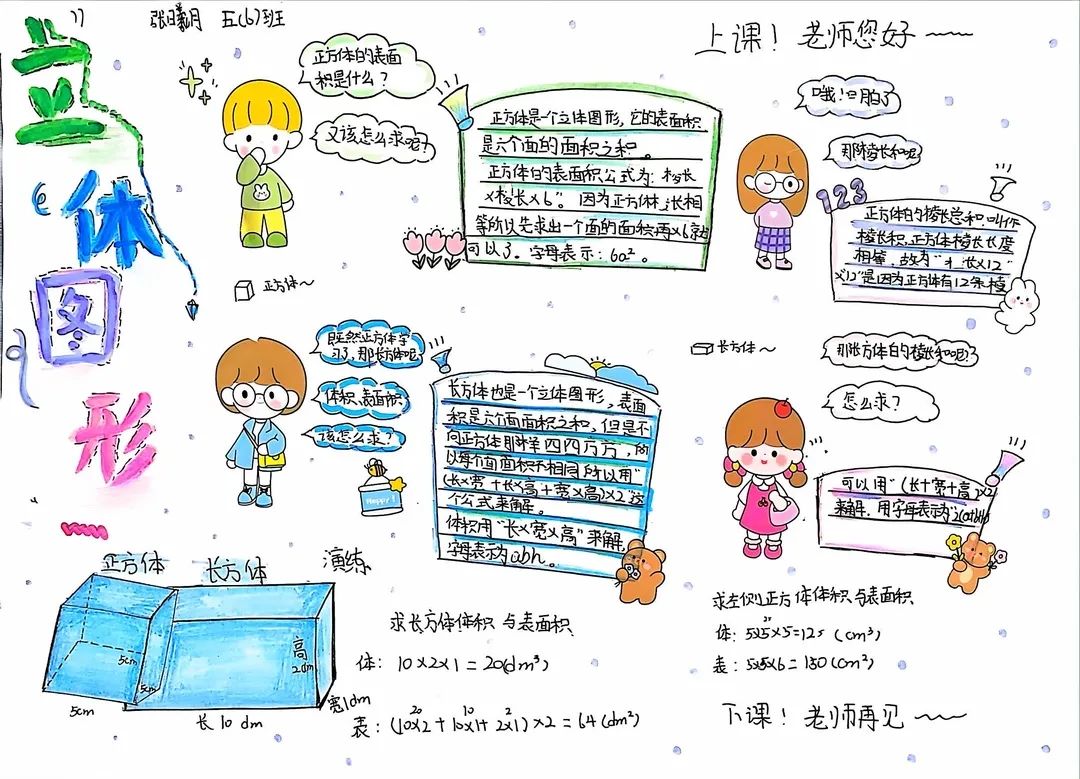 张曦月 五(6)班
立体图形
上课！老师您好
正方体的表面
积是什么？
又该怎么求呢？
正方体是一个立体图形，它的表面积
是六个面的面积之积。
正方体的表面积公式为：棱长
×棱长×6"。因为正方体 长相
等所以先求出一个面的面积再×6就
可以了。字母表示：6a²。
正方体～
哦！明白了
那棱长和呢
123
正方体的棱长总和叫作
棱长积，正方体棱长长度
相等，故为" 长×12"
"×12"是因为正方体有12条棱
既然正方体学
习了，那长方体呢
体积、表面积
该怎么求？
Happy!
长方体也是一个立体图形，表面
积是六个面面积之和，但是不
向正方体那样四四方方，所
以每个面面积不相同所以用"
(长×宽+长×高+宽×高)×2这
个公式来解。
体积用"长×宽×高"来解，
字母表示为abh。
长方体～
那长方体的棱长和呢？
怎么求？
可以用"(长+宽+高)×2
来解，用字母表示为"2(a+b+h)
正方体 长方体 演练
5cm
5cm
5cm
高
2dm
宽1dm
长10dm
求长方体体积与表面积
体：10×2×1=20(dm³)
20 10 2
表：(10×2+10×1+2×1)×2=64(dm²)
求左侧正方体体积与表面积
25
体：5×5×5=125(cm³)
表：5×5×6=150(cm²)
下课！老师再见